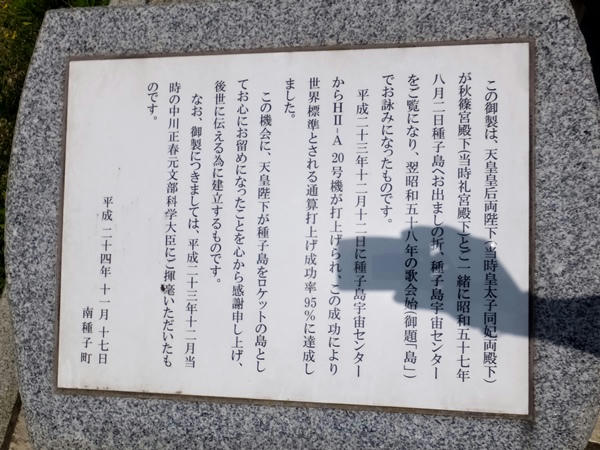 この御製は、天皇皇后両陛下(当時皇太子同妃両殿下)
が秋篠宮殿下(当時礼宮殿下)とご一緒に昭和五十七年
八月二日種子島へお出ましの折、種子島宇宙センター
をご覧になり、翌昭和五十八年の歌会始(御題「島」)
でお詠みになったものです。
平成二十三年十二月十二日に種子島宇宙センター
からHⅡ-A 20号機が打上げられ、この成功により
世界標準とされる通算打上げ成功率95%に達成し
ました。
この機会に、天皇陛下が種子島をロケットの島とし
てお心にお留めになったことを心から感謝申し上げ、
後世に伝える為に建立するものです。
なお、御製につきましては、平成二十三年十二月当
時の中川正春元文部科学大臣にご揮毫いただいたも
のです。
平成 二十四年 十一月 十七日
南種子町